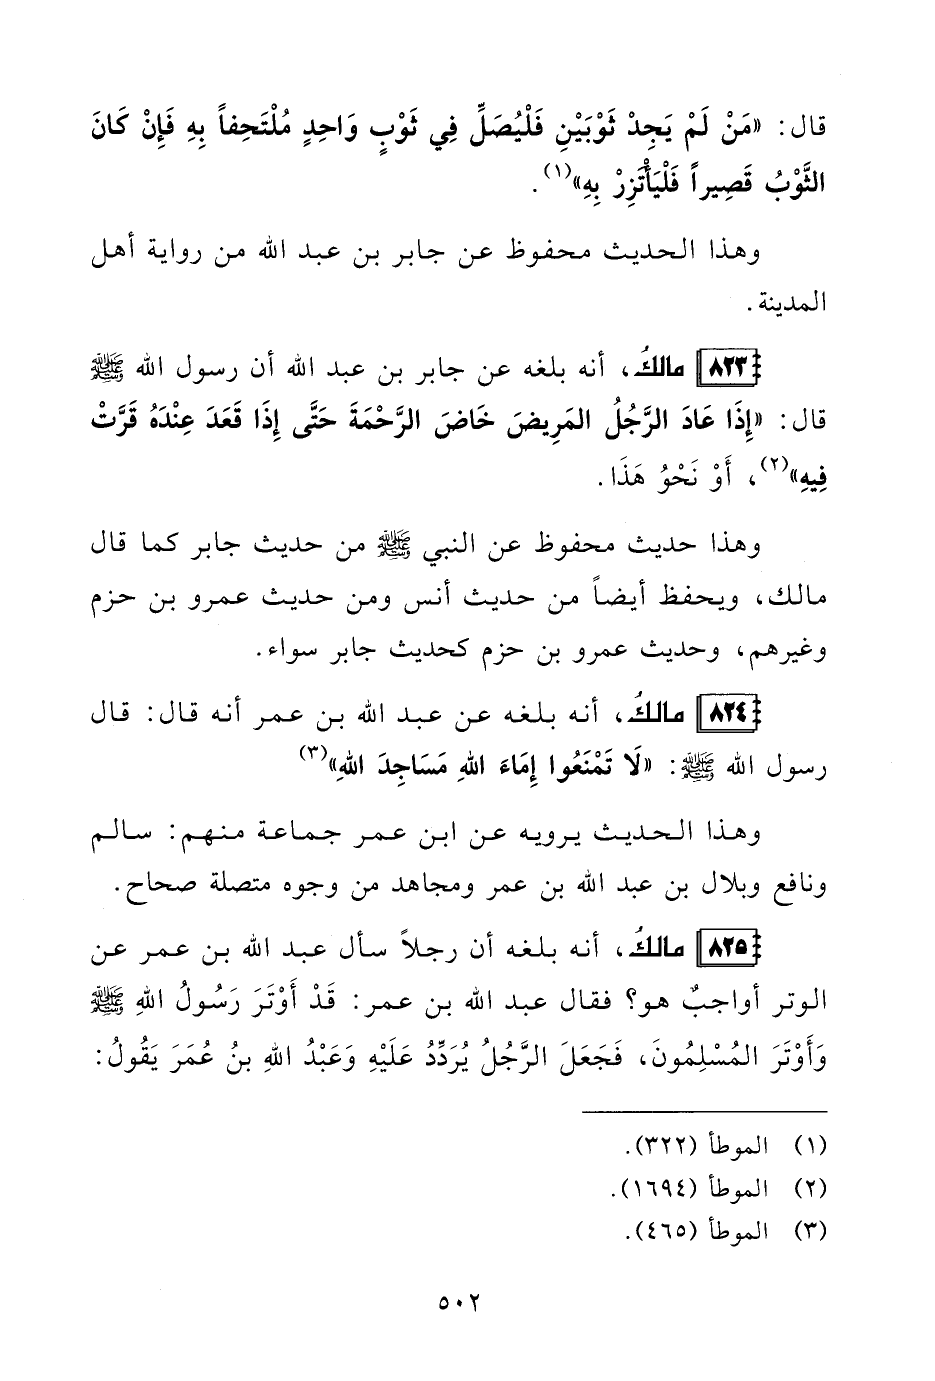 قال: «مَنْ لَمْ يَجِدْ ثَوْبَيْنِ فَلْيُصَلِّ فِي ثَوْبٍ وَاحِدٍ مُلْتَحِفاً بِهِ فَإِنْ كَانَ
الثَّوْبُ قَصِيراً فَلْيَأْتَزِرْ بِهِ»(١).
وهذا الحديث محفوظ عن جابر بن عبد الله من رواية أهل
المدينة.
٨٢٣ مالكُ، أنه بلغه عن جابر بن عبد الله أن رسول الله ﷺ
قال: «إِذَا عَادَ الرَّجُلُ المَرِيضَ خَاضَ الرَّحْمَةَ حَتَّى إِذَا قَعَدَ عِنْدَهُ قَرَّتْ
فِيهِ»(٢)، أَوْ نَحْوُ هَذَا.
وهذا حديث محفوظ عن النبي ﷺ من حديث جابر كما قال
مالك، ويحفظ أيضاً من حديث أنس ومن حديث عمرو بن حزم
وغيرهم، وحديث عمرو بن حزم كحديث جابر سواء.
٨٢٤ مالكُ، أنه بلغه عن عبد الله بن عمر أنه قال: قال
رسول الله ﷺ: «لَا تَمْنَعُوا إِمَاءَ اللهِ مَسَاجِدَ اللهِ»(٣)
وهذا الحديث يرويه عن ابن عمر جماعة منهم: سالم
ونافع وبلال بن عبد الله بن عمر ومجاهد من وجوه متصلة صحاح.
٨٢٥ مالكُ، أنه بلغه أن رجلاً سأل عبد الله بن عمر عن
الوتر أواجبٌ هو؟ فقال عبد الله بن عمر: قَدْ أَوْتَرَ رَسُولُ اللهِ ﷺ
وَأَوْتَرَ المُسْلِمُونَ، فَجَعَلَ الرَّجُلُ يُرَدِّدُ عَلَيْهِ وَعَبْدُ اللهِ بنُ عُمَرَ يَقُولُ:
(١) الموطأ (٣٢٢).
(٢) الموطأ (١٦٩٤).
(٣) الموطأ (٤٦٥).
٥٠٢